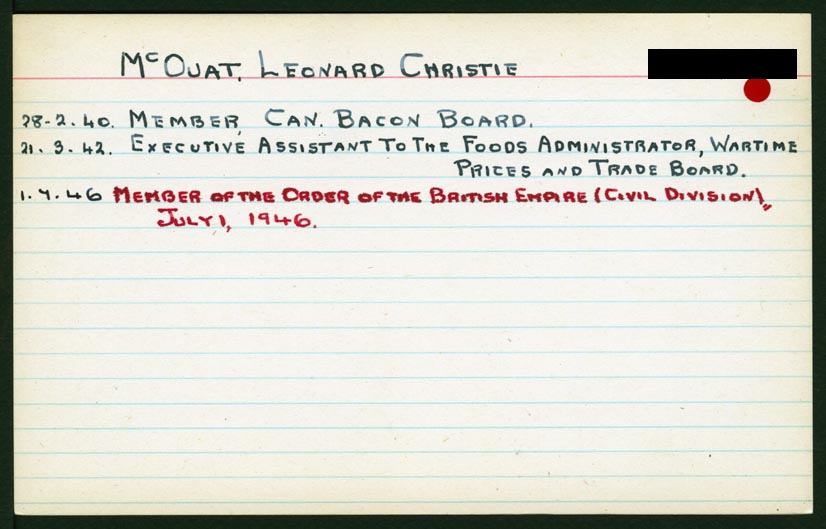 McOUAT, LEONARD CHRISTIE
28-2.40. MEMBER, CAN. BACON BOARD.
21.3.42. EXECUTIVE ASSISTANT TO THE FOODS ADMINISTRATOR, WARTIME
PRICES AND TRADE BOARD.
1.7.46 MEMBER OF THE ORDER OF THE BRITISH EMPIRE (CIVIL DIVISION),
JULY 1, 1946.